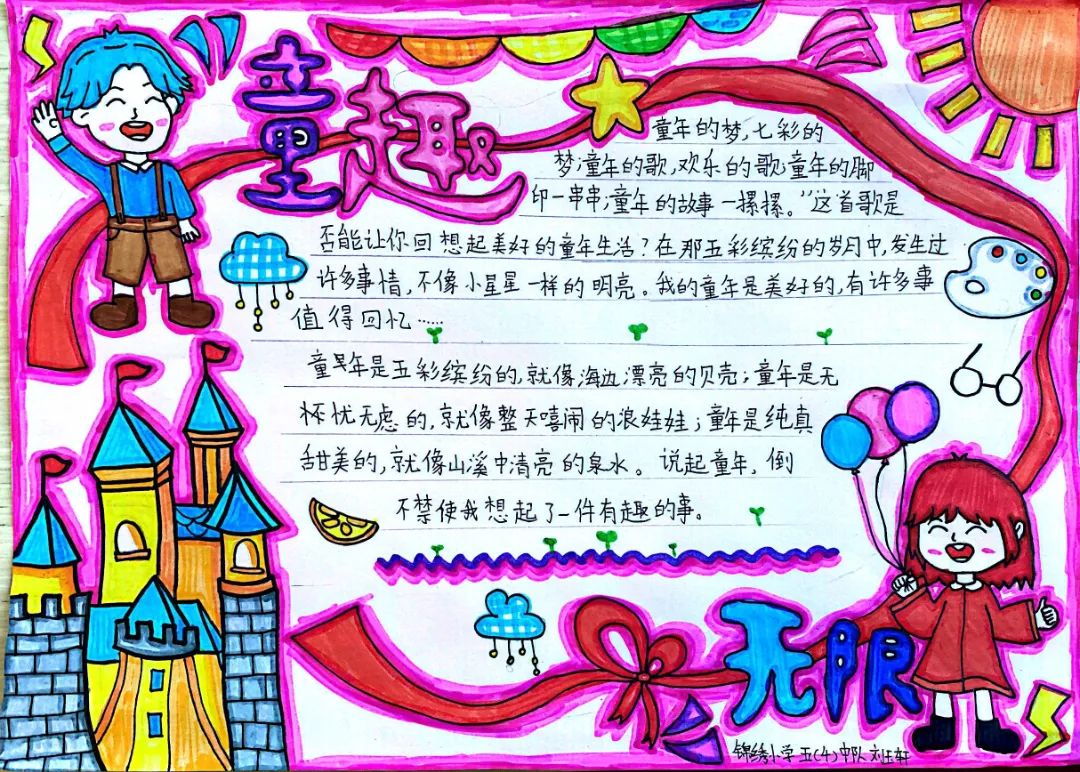 童趣
童年的梦,七彩的
梦;童年的歌,欢乐的歌;童年的脚
印一串串;童年的故事一摞摞。”这首歌是
否能让你回想起美好的童年生活?在那五彩缤纷的岁月中,发生过
许多事情,不像小星星一样的明亮。我的童年是美好的,有许多事
值得回忆……
童年是五彩缤纷的,就像海边漂亮的贝壳;童年是无
怀忧无虑的,就像整天嘻闹的浪娃娃;童年是纯真
甜美的,就像山溪中清亮的泉水。说起童年,倒
不禁使我想起了一件有趣的事。
无限
锦绣小学五(4)中队刘玉轩